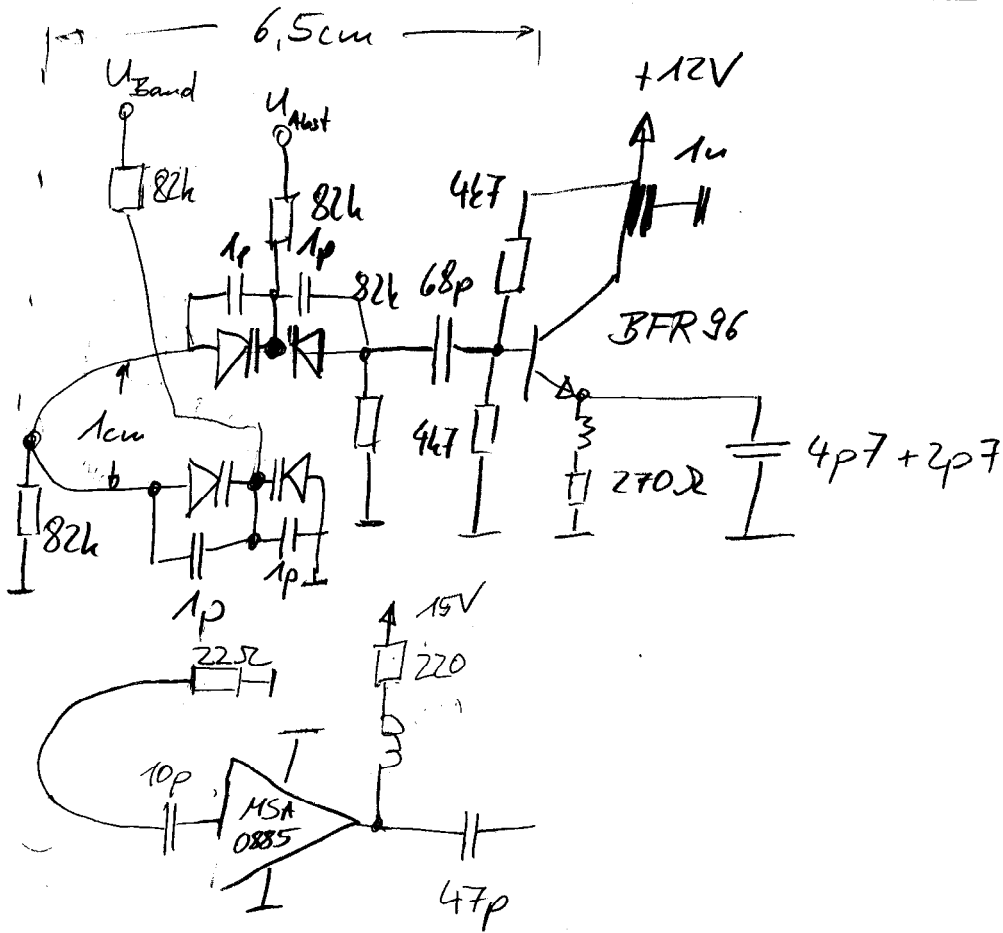 6,5cm
U Band
U Abst
+12V
1n
82k
82k
4k7
1p
1p
82k
68p
BFR96
1cm
4k7
270Ω
4p7 + 2p7
82k
1p
1p
15V
22Ω
220
10p
MSA
0885
47p